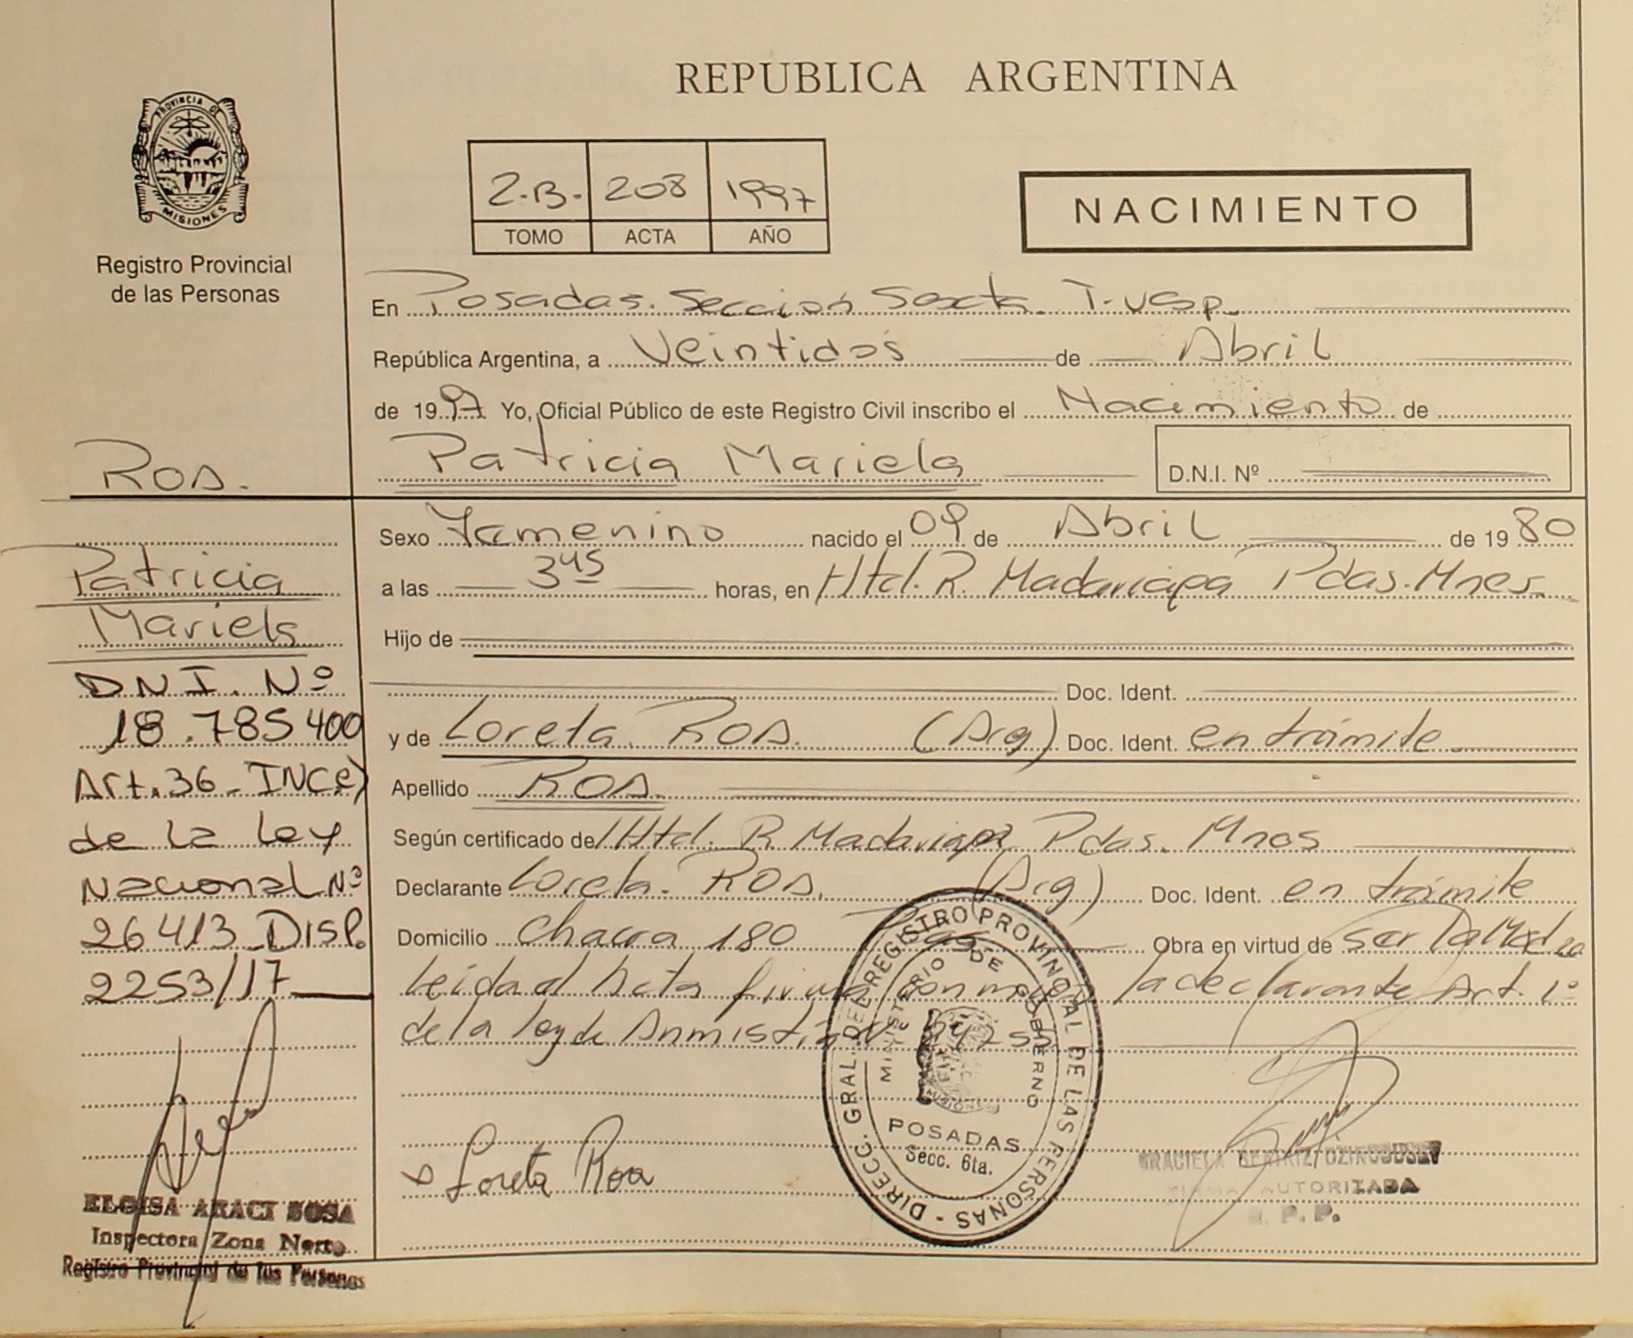 REPUBLICA ARGENTINA
PROVINCIA DE
MISIONES
Registro Provincial
de las Personas
2-B- 208 1997
TOMO ACTA AÑO
NACIMIENTO
En Posadas. Sección Sexta.
República Argentina, a Veintidós de Abril
de 1997 Yo, Oficial Público de este Registro Civil inscribo el Nacimiento de
Patricia Mariela D.N.I. Nº
Roa.
Patricia
Mariela
D.N.I. Nº
18.785400
Art.36_INCe)
de la Ley
Nacional Nº
26413_DISP.
2253/17
ELOISA ARACI SOSA
Inspectora Zona Norte
Registro Provincial de las Personas
Sexo Famenino nacido el 09 de Abril de 1980
a las 3 45 horas, en Htal. R. Madariaga Pdas. Mnes.
Hijo de
Doc. Ident.
y de Loreta Roa. (Arg) Doc. Ident. en trámite
Apellido Roa.
Según certificado de Htal. R. Madariaga Pdas. Mnes
Declarante Loreta. Roa. (Arg) Doc. Ident. en trámite
Domicilio Chacra 180 Pdas Obra en virtud de ser la Madre
Leida el Acta firma conmigo la declarante Art. 1º
de la ley de Anmistia
Loreta Roa
DIRECC. GRAL. DEL REGISTRO PROVINCIAL DE LAS PERSONAS -
MINISTERIO DE GOBIERNO
POSADAS
Secc. 6ta.
GRACIELA BEATRIZ
FIRMA AUTORIZADA
R. P. P.